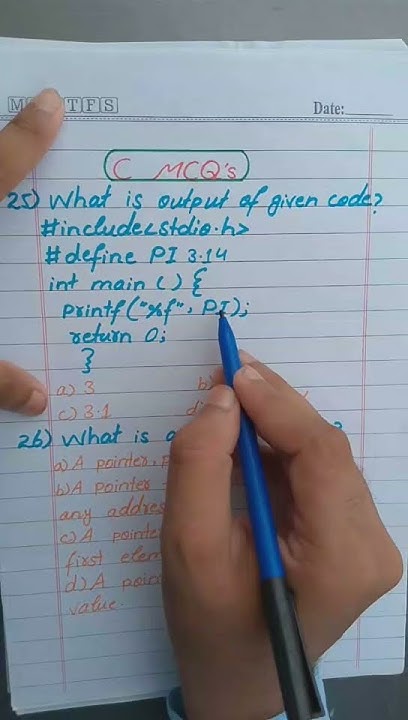 T F S Date:
C MCQ's
25) What is output of given code?
#include<stdio.h>
#define PI 3.14
int main () {
printf("%f", PI);
return 0;
}
a) 3 b)
c) 3.1 d)
26) What is ?
a) A pointer
b) A pointer
any address
c) A pointer
first
d) A
value.